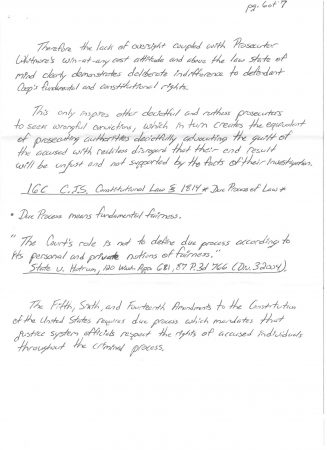 pg. 6 of 7
Therefore the lack of oversight coupled with Prosecutor
Whitmore's win-at-any cost attitude and above the law state of
mind clearly demonstrates deliberate indifference to defendant
Coop's fundamental and constitutional rights.
This only inspires other deceitful and ruthless prosecutors
to seek wrongful convictions, which in turn creates the equivalent
of prosecuting authorities deceitfully advocating the guilt of
the accused with reckless disregard that their end result
will be unjust and not supported by the facts of their investigation.
16C C.J.S. Constitutional Law § 1814 * Due Process of Law *
• Due Process means fundamental fairness.
"The Court's role is not to define due process according to
its personal and private notions of fairness."
State v. 120 Wash. App. 681, 87 P.3d 766 (Div. 3 2004)
The Fifth, Sixth, and Fourteenth Amendments to the Constitution
of the United States requires due process which mandates that
justice system officials respect the rights of accused individuals
throughout the criminal process.